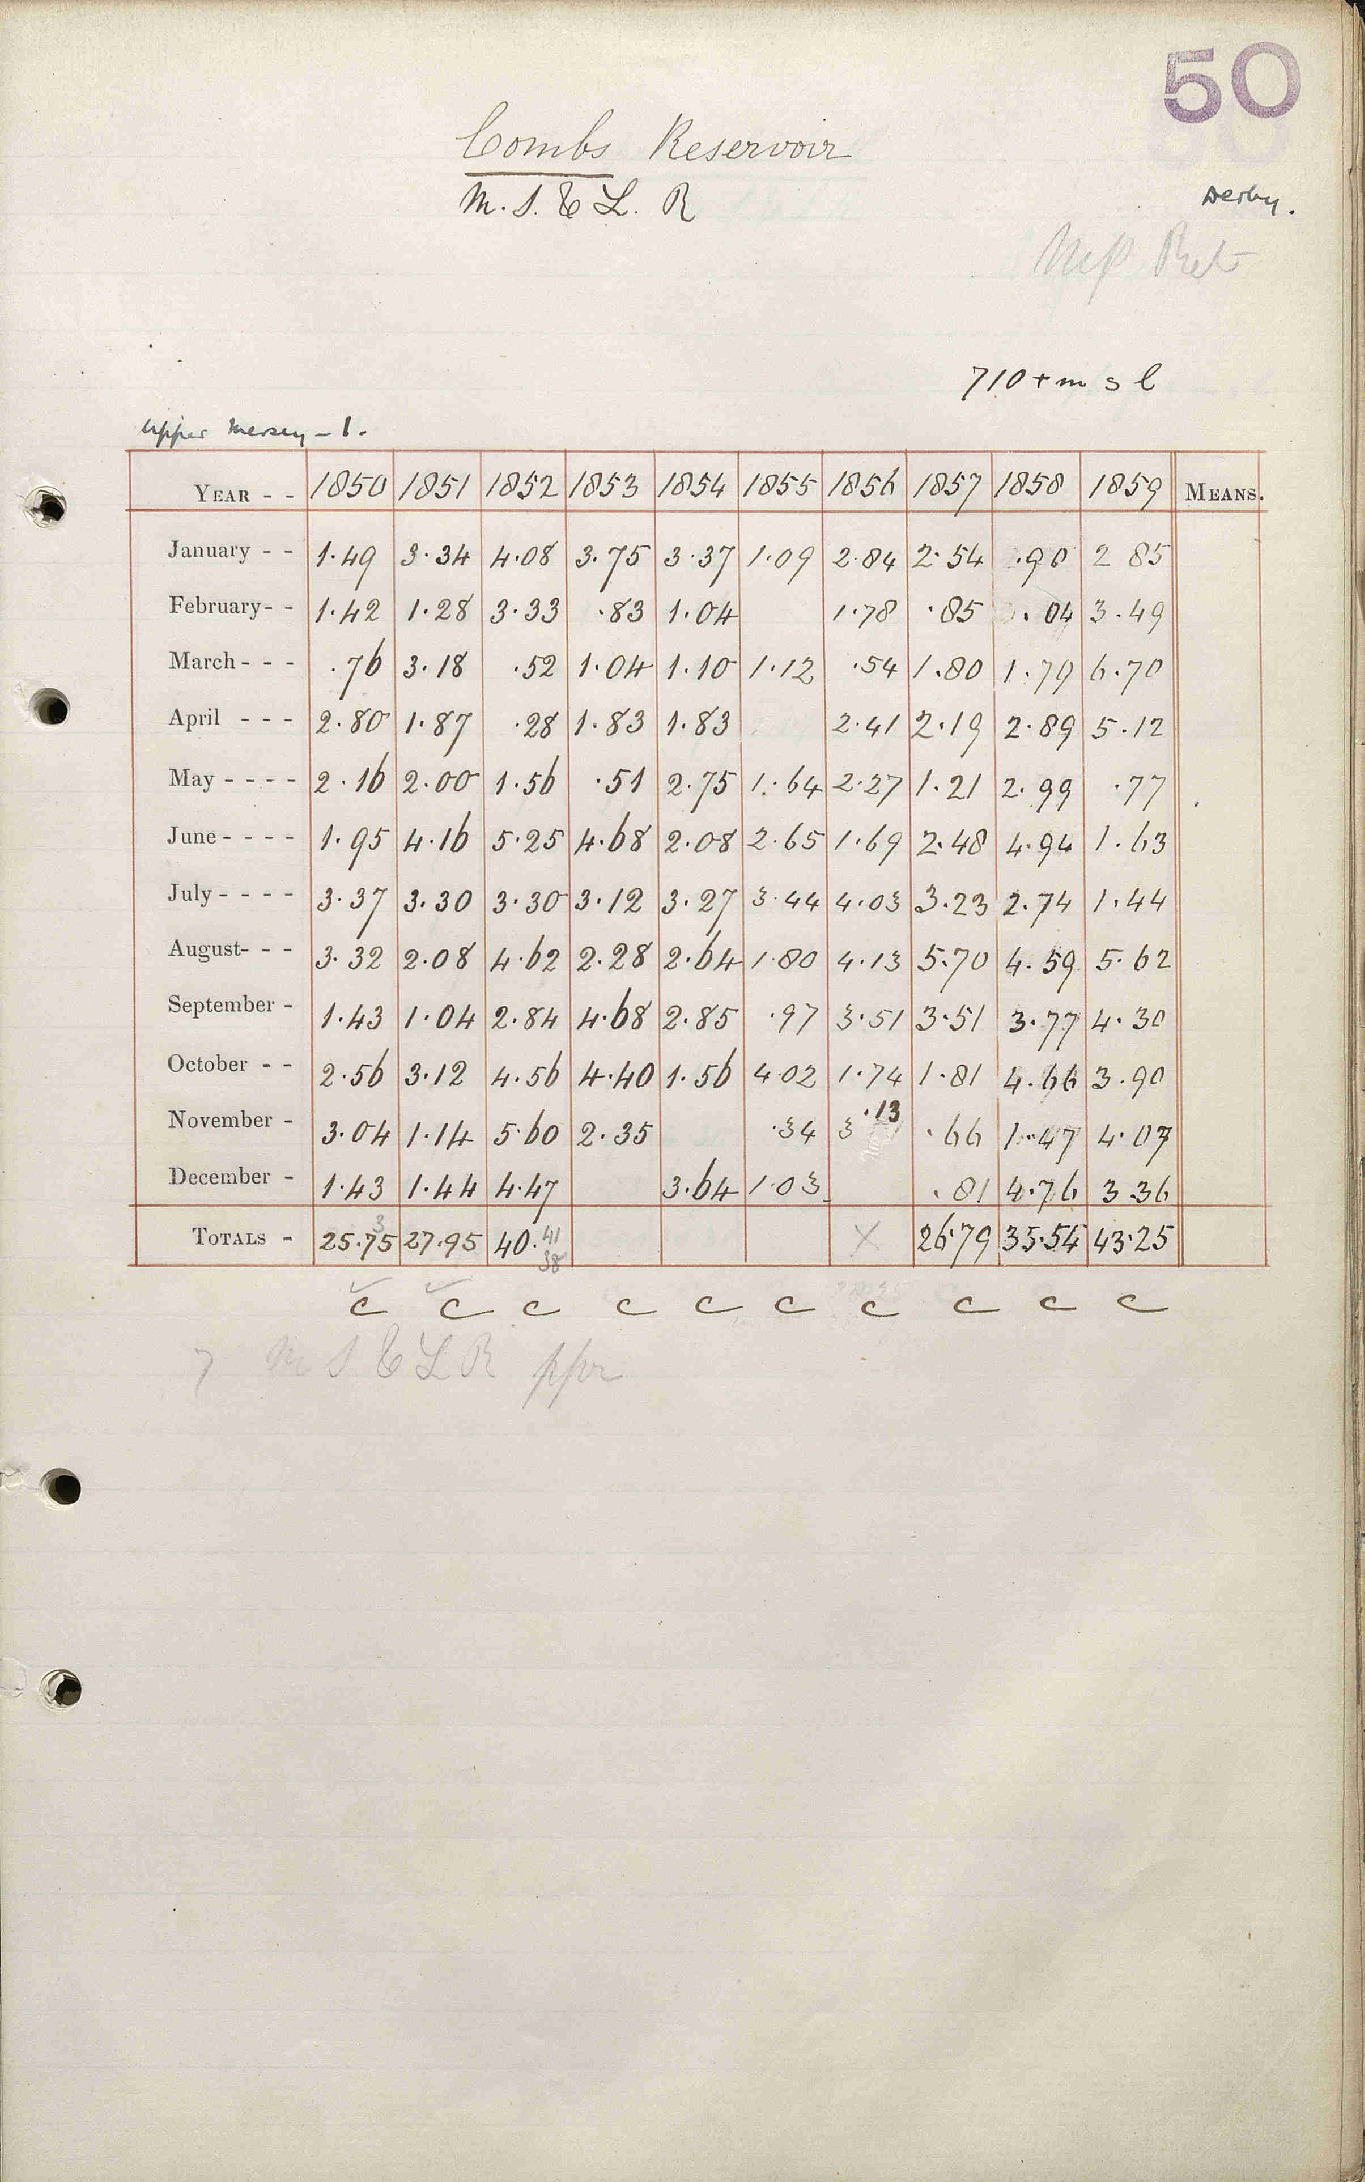 50
Combs Reservoir
M. S. & L. R
Derby.
710 + m s l
Upper Mersey - 1.
YEAR - - 1850 1851 1852 1853 1854 1855 1856 1857 1858 1859 MEANS.
January - - 1.49 3.34 4.08 3.75 3.37 1.09 2.84 2.54 .90 2 85
February- - 1.42 1.28 3.33 .83 1.04 1.78 .85 .04 3.49
March - - - .76 3.18 .52 1.04 1.10 1.12 .54 1.80 1.79 6.70
April - - - 2.80 1.87 .28 1.83 1.83 2.41 2.19 2.89 5.12
May - - - - 2.16 2.00 1.56 .51 2.75 1.64 2.27 1.21 2.99 .77
June - - - - 1.95 4.16 5.25 4.68 2.08 2.65 1.69 2.48 4.94 1.63
July - - - - 3.37 3.30 3.30 3.12 3.27 3.44 4.03 3.23 2.74 1.44
August- - - 3.32 2.08 4.62 2.28 2.64 1.80 4.13 5.70 4.59 5.62
September - 1.43 1.04 2.84 4.68 2.85 .97 3.51 3.51 3.77 4.30
October - - 2.56 3.12 4.56 4.40 1.56 4.02 1.74 1.81 4.66 3.90
November - 3.04 1.14 5.60 2.35 .34 3.13 .66 1.47 4.07
December - 1.43 1.44 4.47 3.64 1.03 .81 4.76 3.36
TOTALS - 25.75 3 27.95 40.41 38 X 26.79 35.54 43.25
c c c c c c c c c c
M S & L R